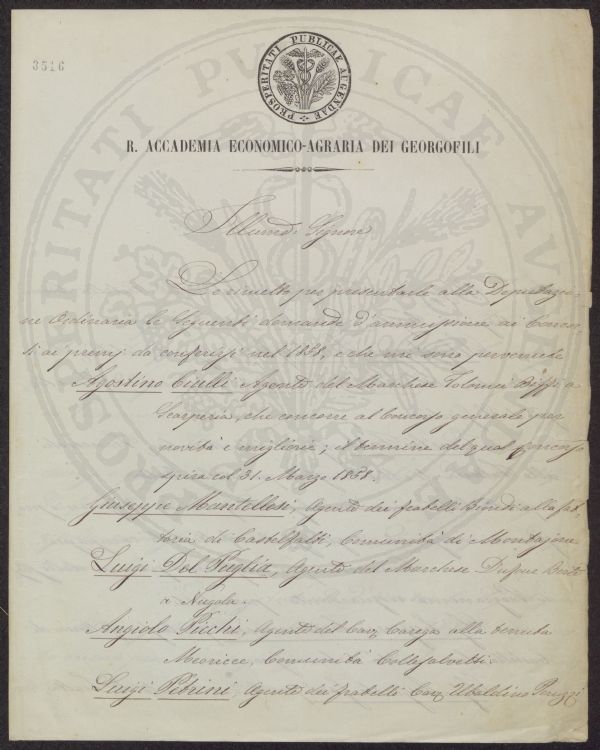 3516
PROSPERITATI PUBLICAE AUGENDAE
R. ACCADEMIA ECONOMICO-AGRARIA DEI GEORGOFILI
Signore
Le rimetto per presentarle alla Deputazio
ne Ordinaria le seguenti domande d'ammissione ai Concor
si ai premj da conferirsi nel 1858, e che mi sono pervenute
Agostino Ciulli Agente del Marchese Tolomei Biffi a
Scarperia, che concorre al Concorso generale per
novità e migliorie; il termine del qual Concorso
spira col 31. Marzo 1858.
Giuseppe Mantellesi, Agente dei fratelli Biondi alla fat,
toria di Castelfalfi, Comunità di Montajone
Luigi Del Puglia, Agente del Marchese Dufour Berte
a Nugola.
Angiolo Picchi, Agente del Cav. Carega alla tenuta
Comunità Collesalvetti.
Luigi Petrini Agente dei fratelli Cav. Ubaldino Peruzzi